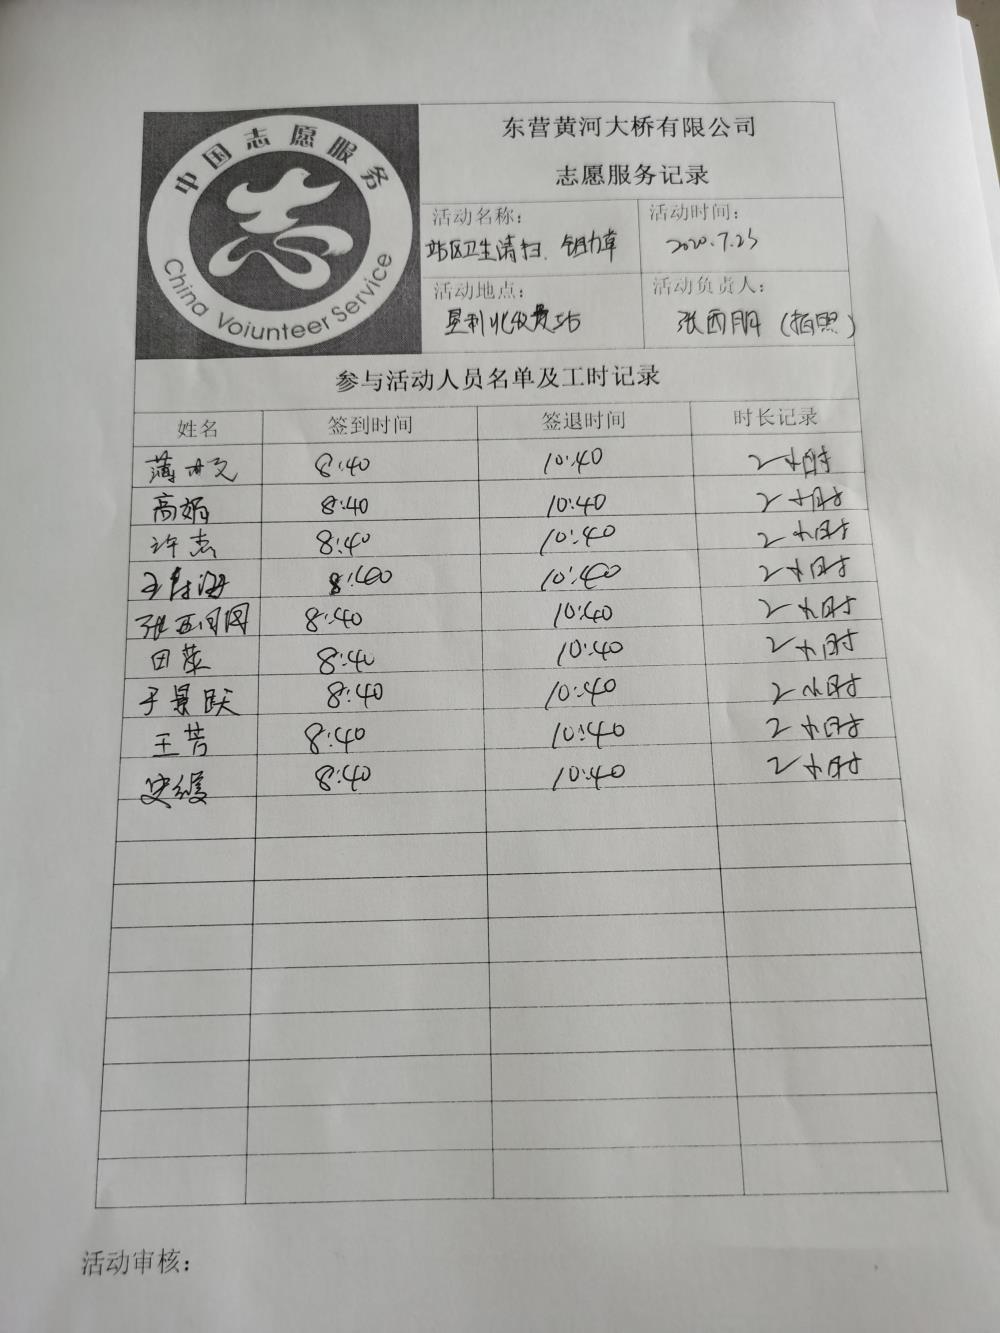 中国志愿服务
China Voiunteer Service
东营黄河大桥有限公司
志愿服务记录
活动名称：
站区卫生清扫、锄草
活动时间：
2020.7.25
活动地点：
垦利北收费站
活动负责人：
张西朋（拍照）
参与活动人员名单及工时记录
姓名 签到时间 签退时间 时长记录
薄 8:40 10:40 2小时
高娟 8:40 10:40 2小时
许杰 8:40 10:40 2小时
王海 8:40 10:40 2小时
张西 8:40 10:40 2小时
田苹 8:40 10:40 2小时
于景跃 8:40 10:40 2小时
王芳 8:40 10:40 2小时
史缓 8:40 10:40 2小时
活动审核：